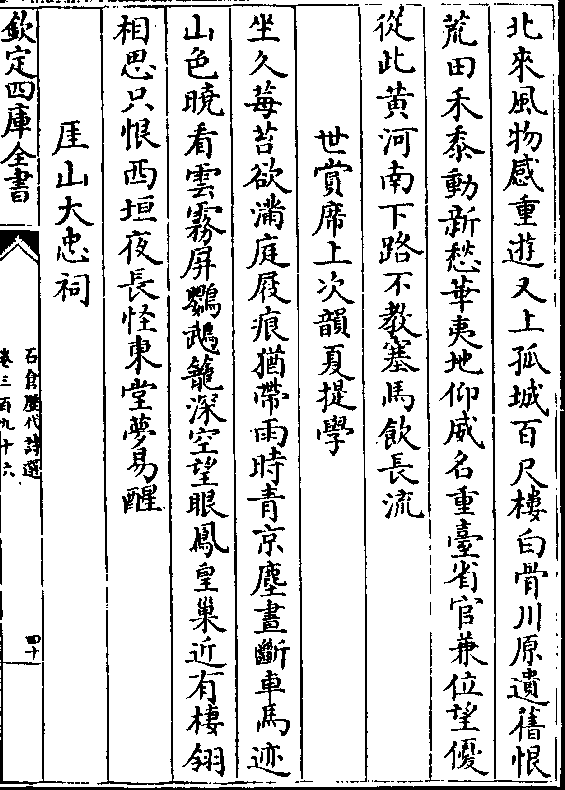 北來風物感重遊又上孤城百尺樓白骨川原遺舊恨
荒田禾黍動新愁華夷地仰威名重臺省官兼位望優
從此黄河南下路不教塞馬飲長流
世賞席上次韻夏提學
坐久莓苔欲滿庭屐痕猶帶雨時青京塵晝斷車馬迹
山色曉看雲霧屏鸚鵡籠深空望眼鳳皇巢近有棲翎
相思只恨西垣夜長怪東堂夢易醒
厓山大忠祠
欽定四庫全書
石倉歷代詩選
卷三百九十六
四十